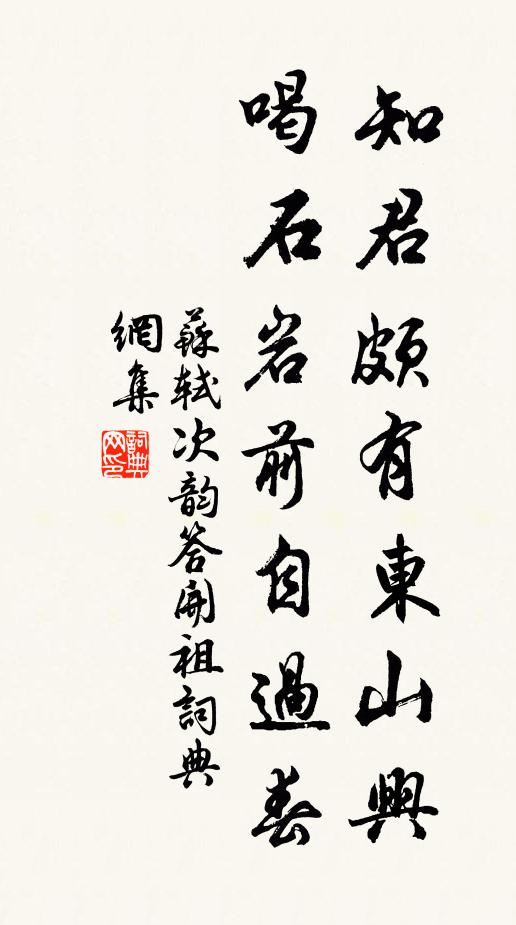 知君頗有東山興
喝石岩前自過春
蘇軾次韵答開祖詞典
網集
詞典
网印